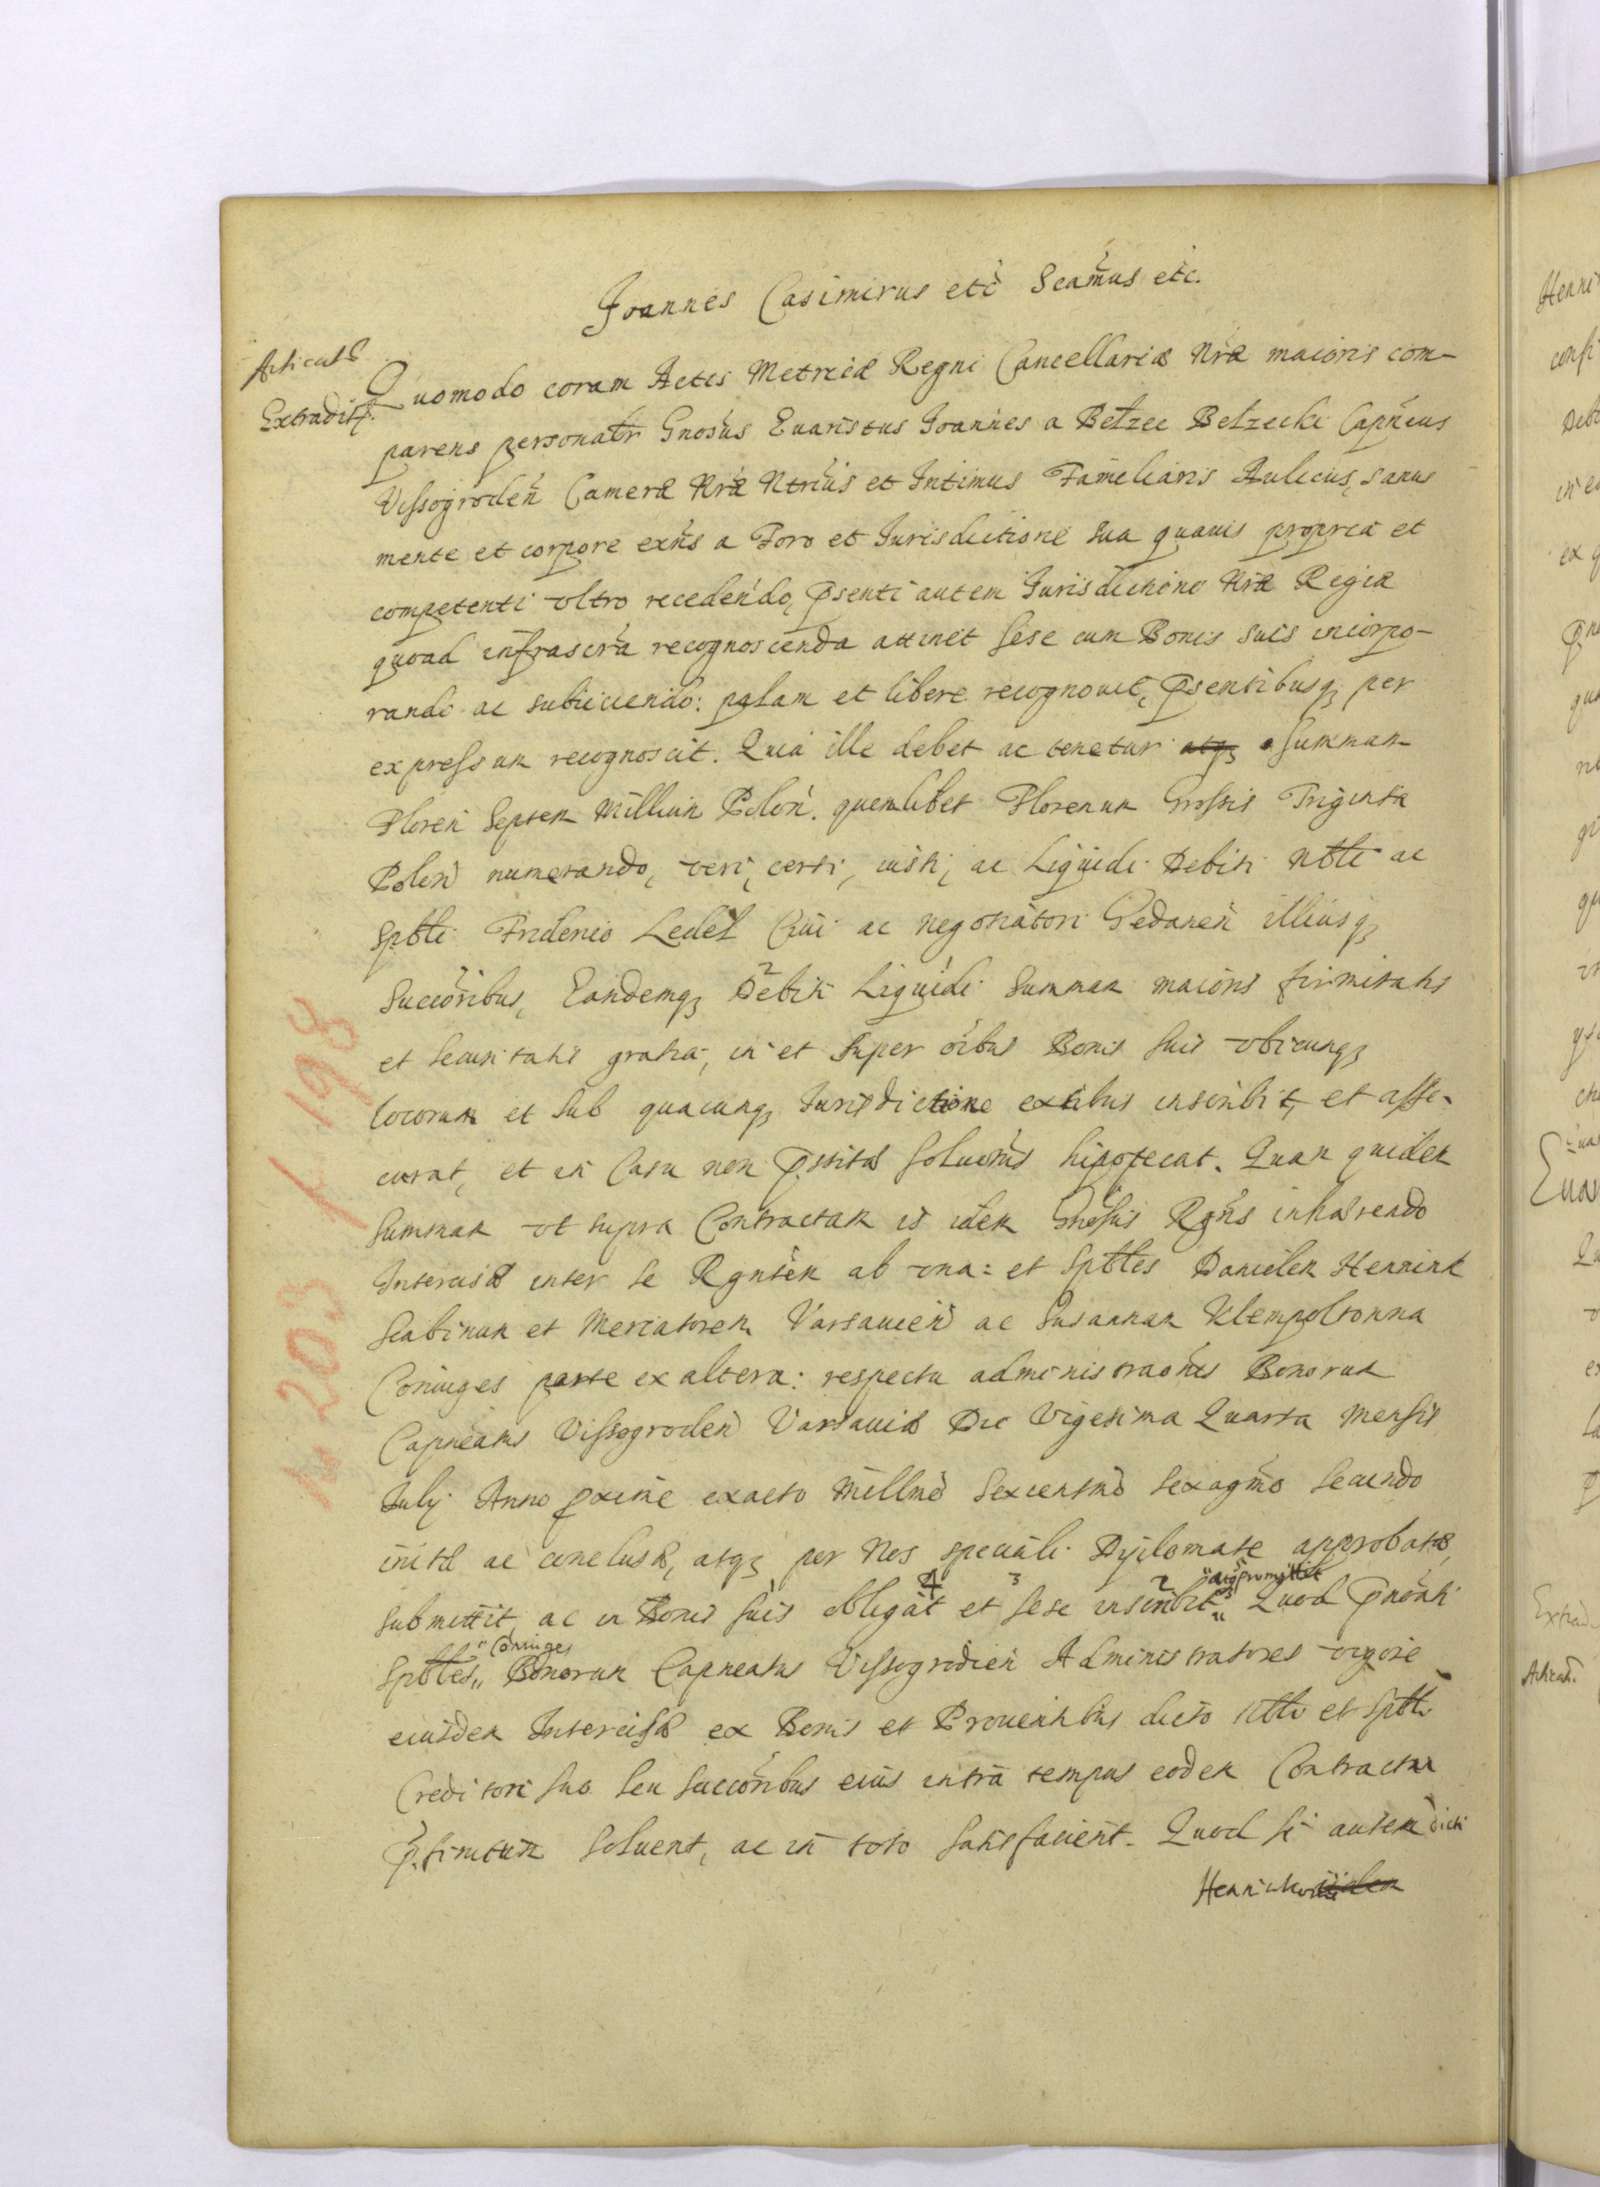 Joannes Casimirus etc Seamus etc.
Articat
Extradit.
Quomodo coram Actis Metricæ Regni Cancellariæ Nræ maioris com-
parens personalr Gnosus Euaristus Joannes a Bełzec Bełzecki Capneus
Vissogroden Cameræ Nræ Ntrius et Intimus Familiaris Aulicus, sanus
mente et corpore exns a Foro et Jurisdictione sua quauis propria et
competenti vltro recedendo, psenti autem Jurisdictione Nræ Regiæ
quoad infrascra recognoscenda attinet sese cum Bonis suis incorpo-
rando ac subiiciendo: palam et libere recognouit, psentibusq per
expressum recognoscit. Quia ille debet ac tenetur atq summam
Floren Septem Millium Polon. quemlibet Florenum Grossis Triginta
Polon numerando, veri, certi, iusti, ac Liquidi Debiti Nbli ac
Spbli Friderico Ledel Ciui ac negotiatori Gedanen illiusq
Succoribus, Eandemq Debiti Liquidi summam maioris firmitatis
et securitatis gratia, in et super oibus Bonis suis vbicunq
locorum et sub quacunq Jurisdictione extibus inscribit, et asse-
curat, et in Casu non pstitæ Solutionis hippotecat. Quam quidem
Summam vt supra Contractam is idem Gnosus Rgns inhærendo
Intercisæ inter se Rgntem ab vna: et Spbles Danielem Henrink
Scabinum et Mercatorem Varsauien ac Susannam Klempoltonna
Coniuges parte ex altera: respectu administraonis Bonorum
Capneatus Vissogroden Varsauiæ Die Vigesima Quarta Mensis
July Anno pxime exacto Millmo Sexcentmo Sexagmo Secundo
initæ ac conclusæ, atq per Nos speciali Dyplomate approbatæ,
submittit, ac in Bonis suis obligat 4 et 3 sese inscribit 2 " atq promittit Quod pnoati
Spbles " Coniuges Bonorum Capneatus Vissogrodien Administratores vigore
eiusdem Intercisæ ex Bonis et Prouentibus dicto Nbli et Spbli
Creditori suo seu succoribus eius intra tempus eodem Contractu
pfinitum Soluent, ac in toto satisfacient. Quod si autem dicti
Henrinkowie
N 203 f 198